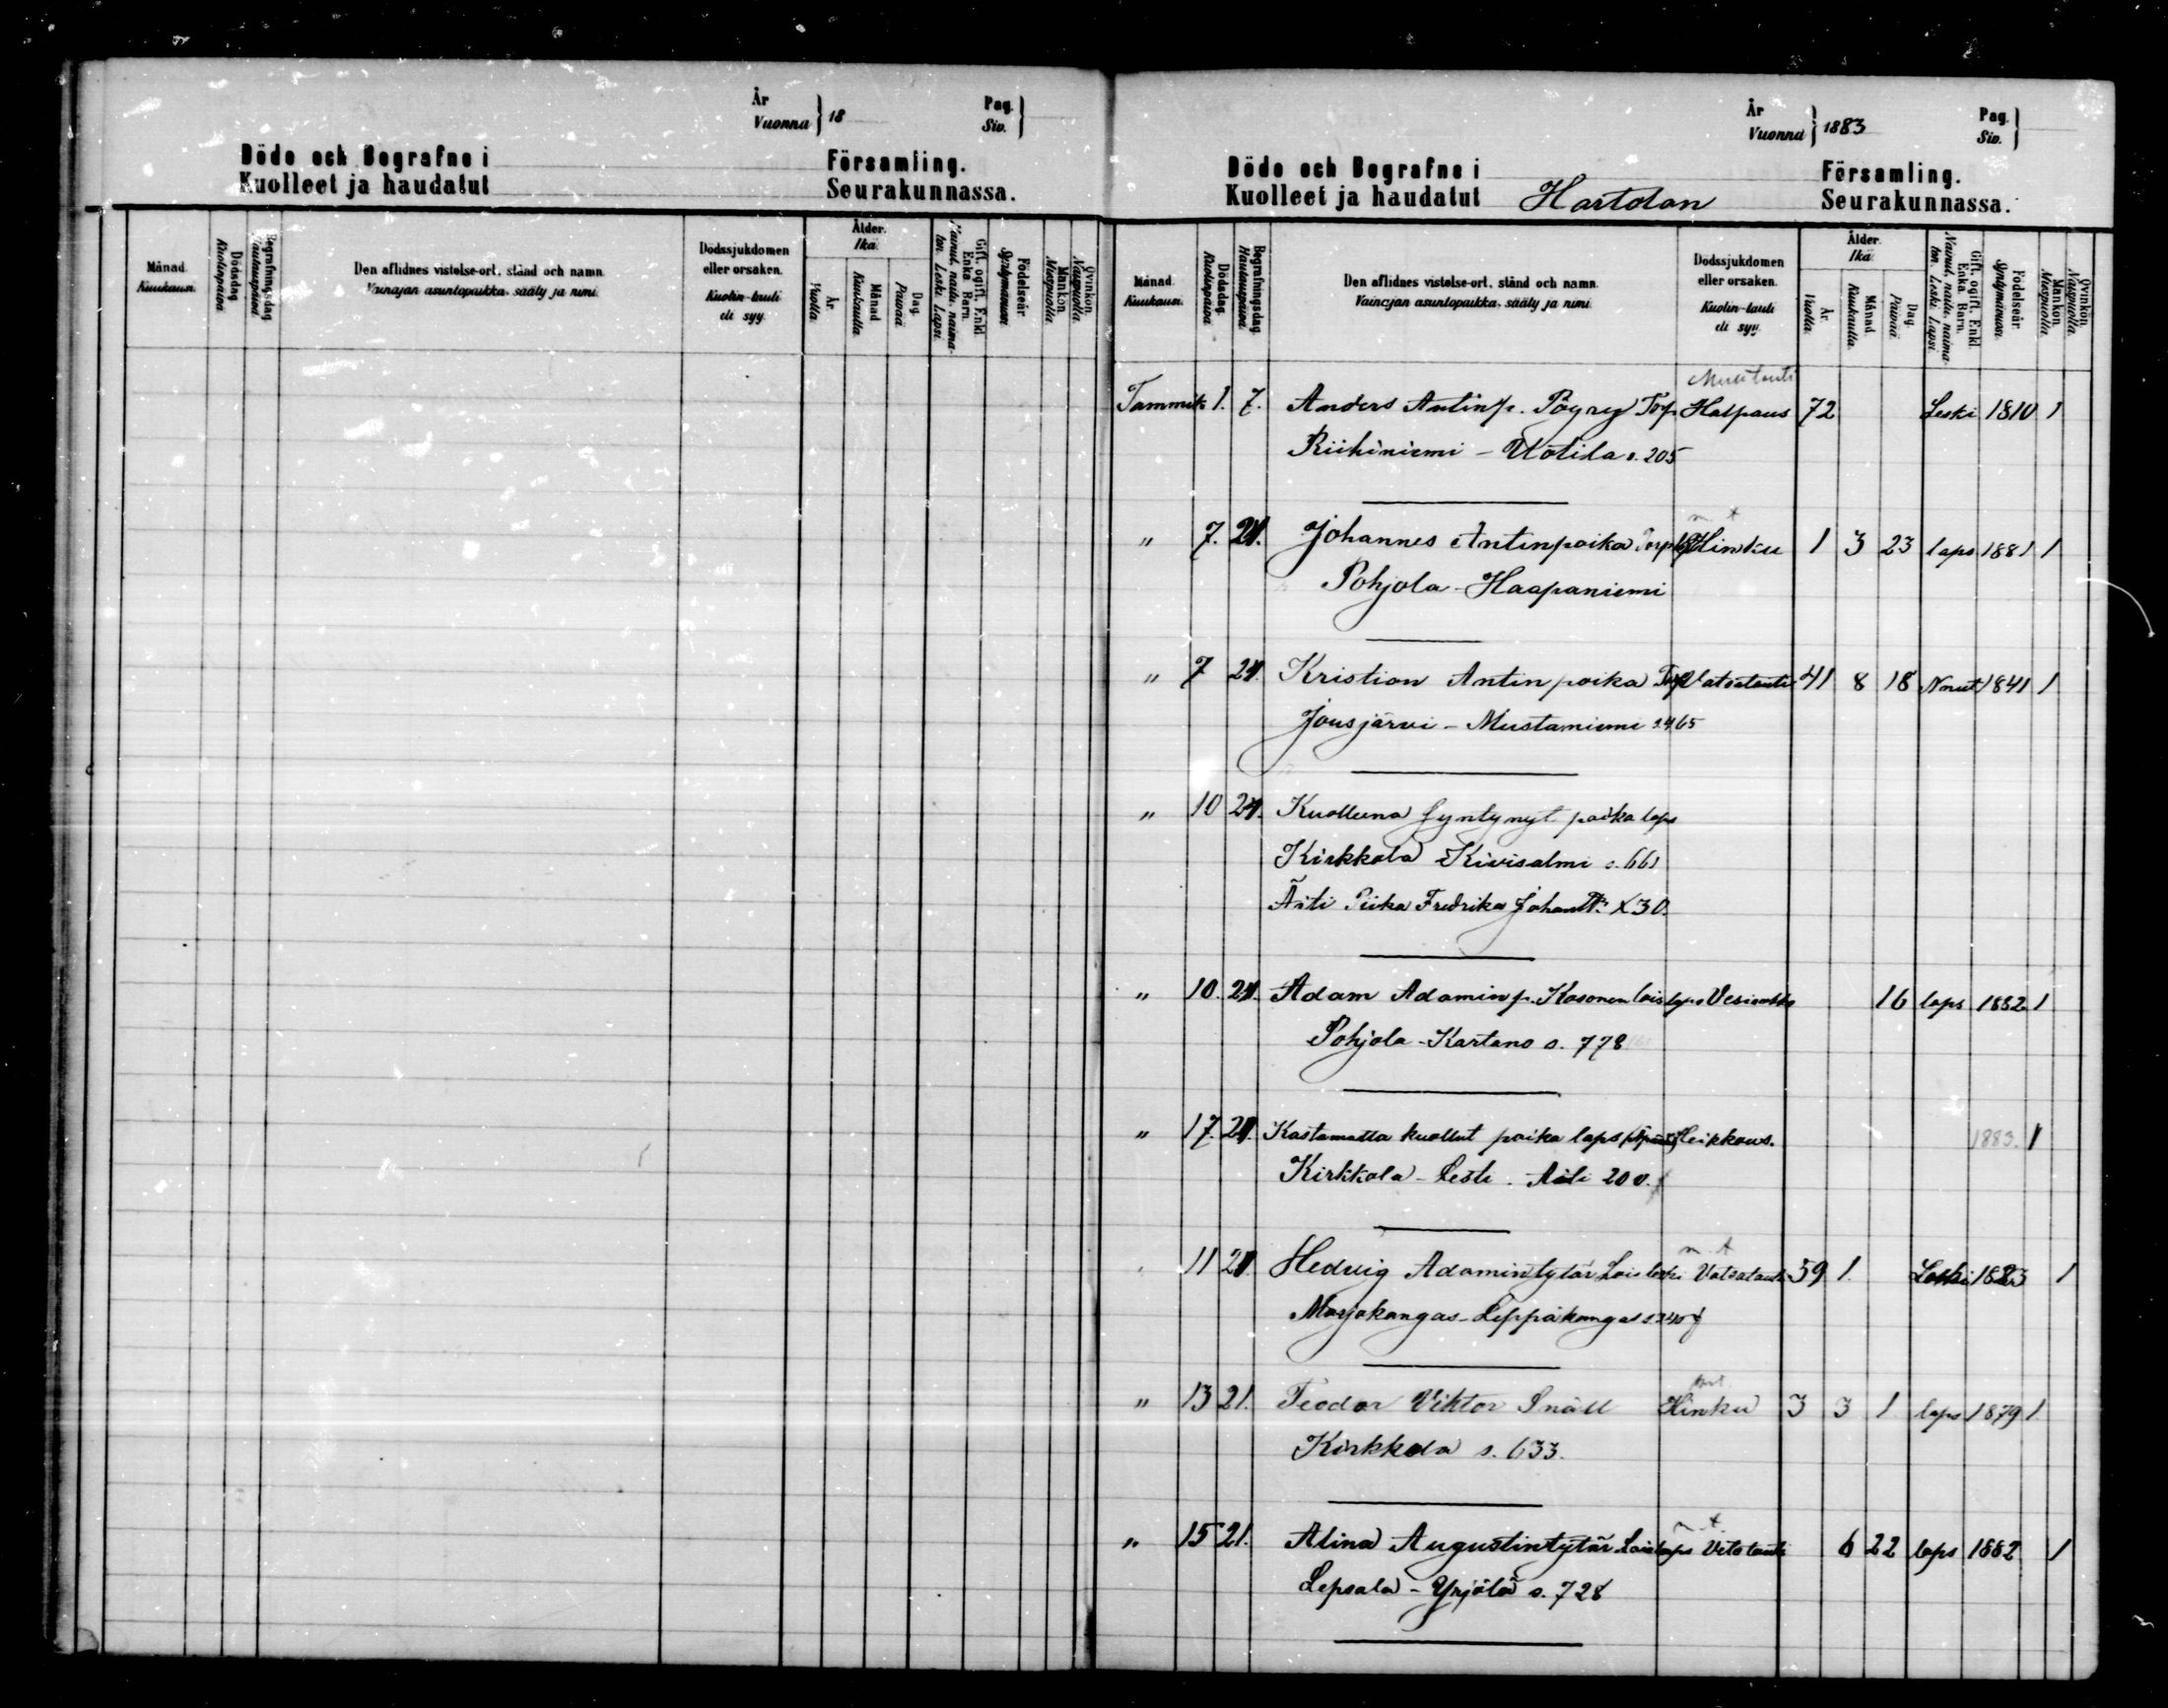 År
Vuonna } 18
Pag.
Siv. }
Döde och Begrafne i Församling.
Kuolleet ja haudatut Seurakunnassa.
Månad.
Kuukausi.
Dödsdag.
Kuolinpäivä
Begrafningsdag
Hautauspäivä
Den aflidnes vistelse-ort, stånd och namn.
Vainajan asuntopaikka, sääty ja nimi.
Dödssjukdomen
eller orsaken.
Kuolin-tauti
eli syy.
Ålder.
Ikä.
År.
Vuotta.
Månad
Kuukautta.
Dag.
Päivää
Gift, ogift, Enkl.
Enka Barn.
Nainut, naitu, naima-
ton. Leski. Lapsi.
Födelseår
Syntymävuosi.
Mankön.
Miespuolia
Qvinkön.
Naispuolia.
År
Vuonna } 1883
Pag.
Siv. }
Döde och Begrafne i Församling.
Kuolleet ja haudatut Hartolan Seurakunnassa.
Månad.
Kuukausi.
Dödsdag.
Kuolinpäivä
Begrafningsdag.
Hautauspäivä.
Den aflidnes vistelse-ort, stånd och namn.
Vainajan asuntopaikka, sääty ja nimi.
Dödssjukdomen
eller orsaken.
Kuolin-tauti
eli syy.
Ålder.
Ikä.
År.
Vuotta.
Månad.
Kuukautta.
Dag.
Päivää
Gift, ogift, Enkl.
Enka Barn.
Nainut, naitu, naima-
ton. Leski. Lapsi.
Födelseår.
Syntymävuosi.
Mankön.
Miespuolia.
Qvinkön.
Naispuolia.
Muu tauti
Tammik 1. 7. Anders Antinp. Pöyry Torp Halpaus 72 Leski 1810 1
Riihiniemi - Uotila s. 205
m t
" 7. 21. Johannes Antinpoika Hinku 1 3 23 laps 1881 1
Pohjola - Haapaniemi
" 7 21. Kristian Antinpoika Torp Vatsatauti 41 8 18 Nnut 1841 1
Jousjärvi - Mustaniemi s. 465
" 10 21. Kuolleena syntynyt poika laps
Kirkkola Kivisalmi s. 661
Äiti Piika Fredrika 30.
" 10. 21. Adam Adaminp. Kosonen lois laps 16 laps 1882 1
Pohjola - Kartano s. 778
" 17. 21. Kastamatta kuollut poika laps Heikkous. 1883. 1
Kirkkola - Äiti 20 v.
m t
11 21. Hedvig Adamintytär Lois leski Vatsatauti 59 1. Leski 1823 1
Marjokangas - Leppäkangas
" 13 21. Teodor Viktor Snäll Hinku 3 3 1 laps 1879 1
Kirkkola s. 633.
m t.
" 15 21. Alina Augustintytär Loislaps 6 22 laps 1882 1
Lepsala - Yrjölä s. 728